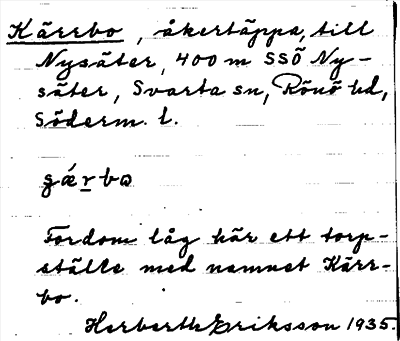 Kärrbo, åkertäppa, till
Nysäter, 400 m SSÖ Ny-
säter, Svarta sn, Rönö hd,
Söderm. l.
Fordom låg här ett torp-
ställe med namnet Kärr-
bo.
Herberth Eriksson 1935.